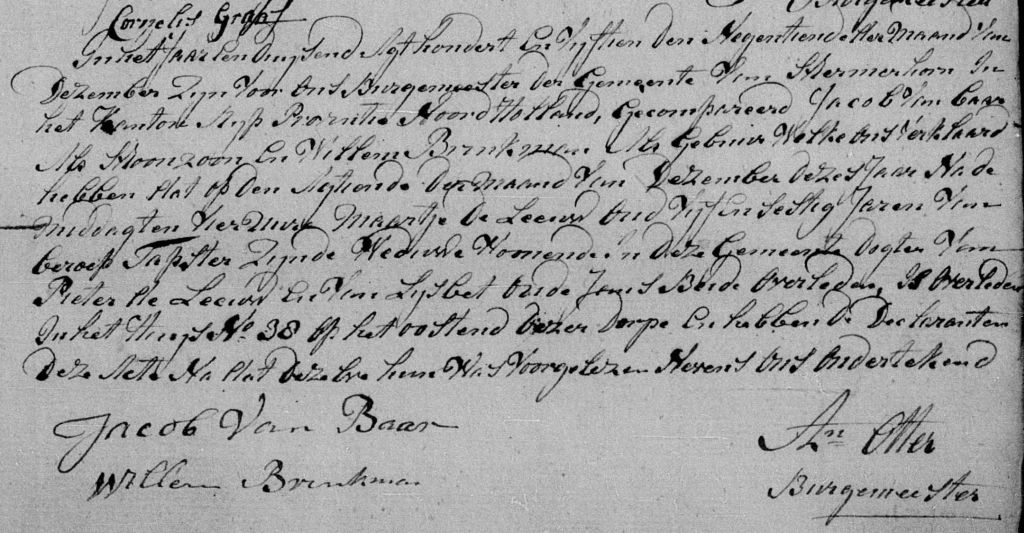 Cornelis Graaf Burgemeester
In het Jaar Een duysend Agt hondert En Vyftien den Negentiende der Maand Van
Dezember Zyn Voor Ons Burgemeester der Gemeente Van Schermerhorn In
het Kanton Ryp Provntie Noord Holland, Gecompareerd Jacob Van Baar
Als Schoonzoon En Willem Brinkman Als Gebuur Welke Ons Verklaard
hebben dat op den Agtiende der Maand Van Dezember dezes Jaar Na de
middag ten Vier uure Maartje de Leeuw Oud Vyf En Sestig Jaren Van
beroep Tapster Zynde Weduwe Woonende In deze Gemeente dogter Van
Pieter de Leeuw En Van Lysbet Oude Jans Beide Overleden, Is Overleden
In het Huys No. 38 op het oostend dezer Dorpe En hebben de Declaranten
Deze Acte Na dat dezelve hun Was Voorgelezen Nevens Ons Ondertekend
Jacob Van Baar
Willem Brinkman
An Otter
Burgemeester